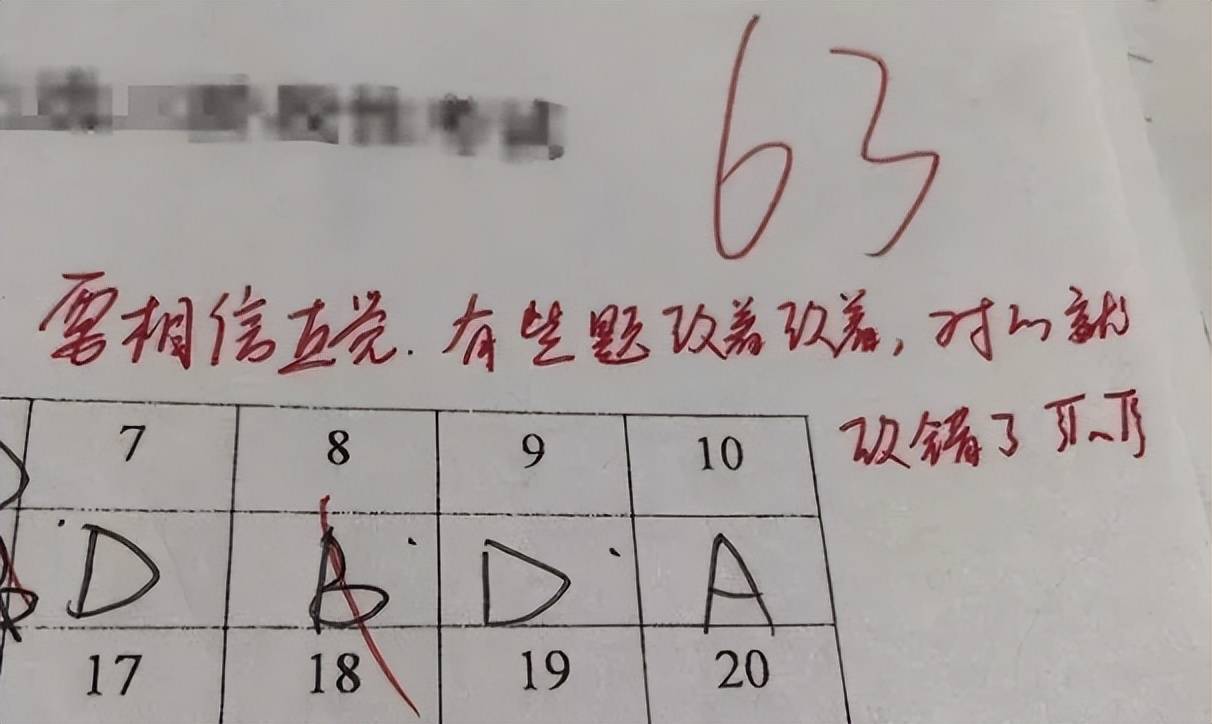 63
需相信直觉.有些题改着改着,对的就
改错了 T^T
7 8 9 10
D B D A
17 18 19 20